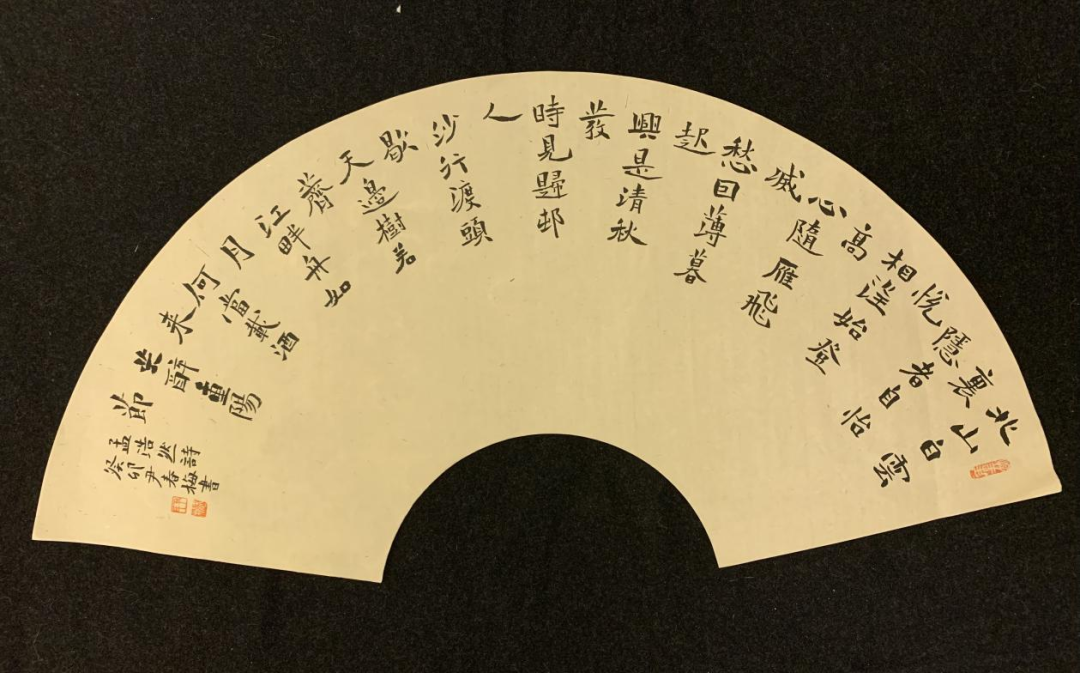 北山白雲
裏
隱者自怡
悅
相望始登
高
心隨雁飛
滅
愁囙薄暮
起
興是清秋
發
時見歸邨
人
沙行渡頭
歇
天邊樹若
薺
江畔舟如
月
何當載酒
来
共醉重陽
節
孟浩然詩
癸卯尹春梅書